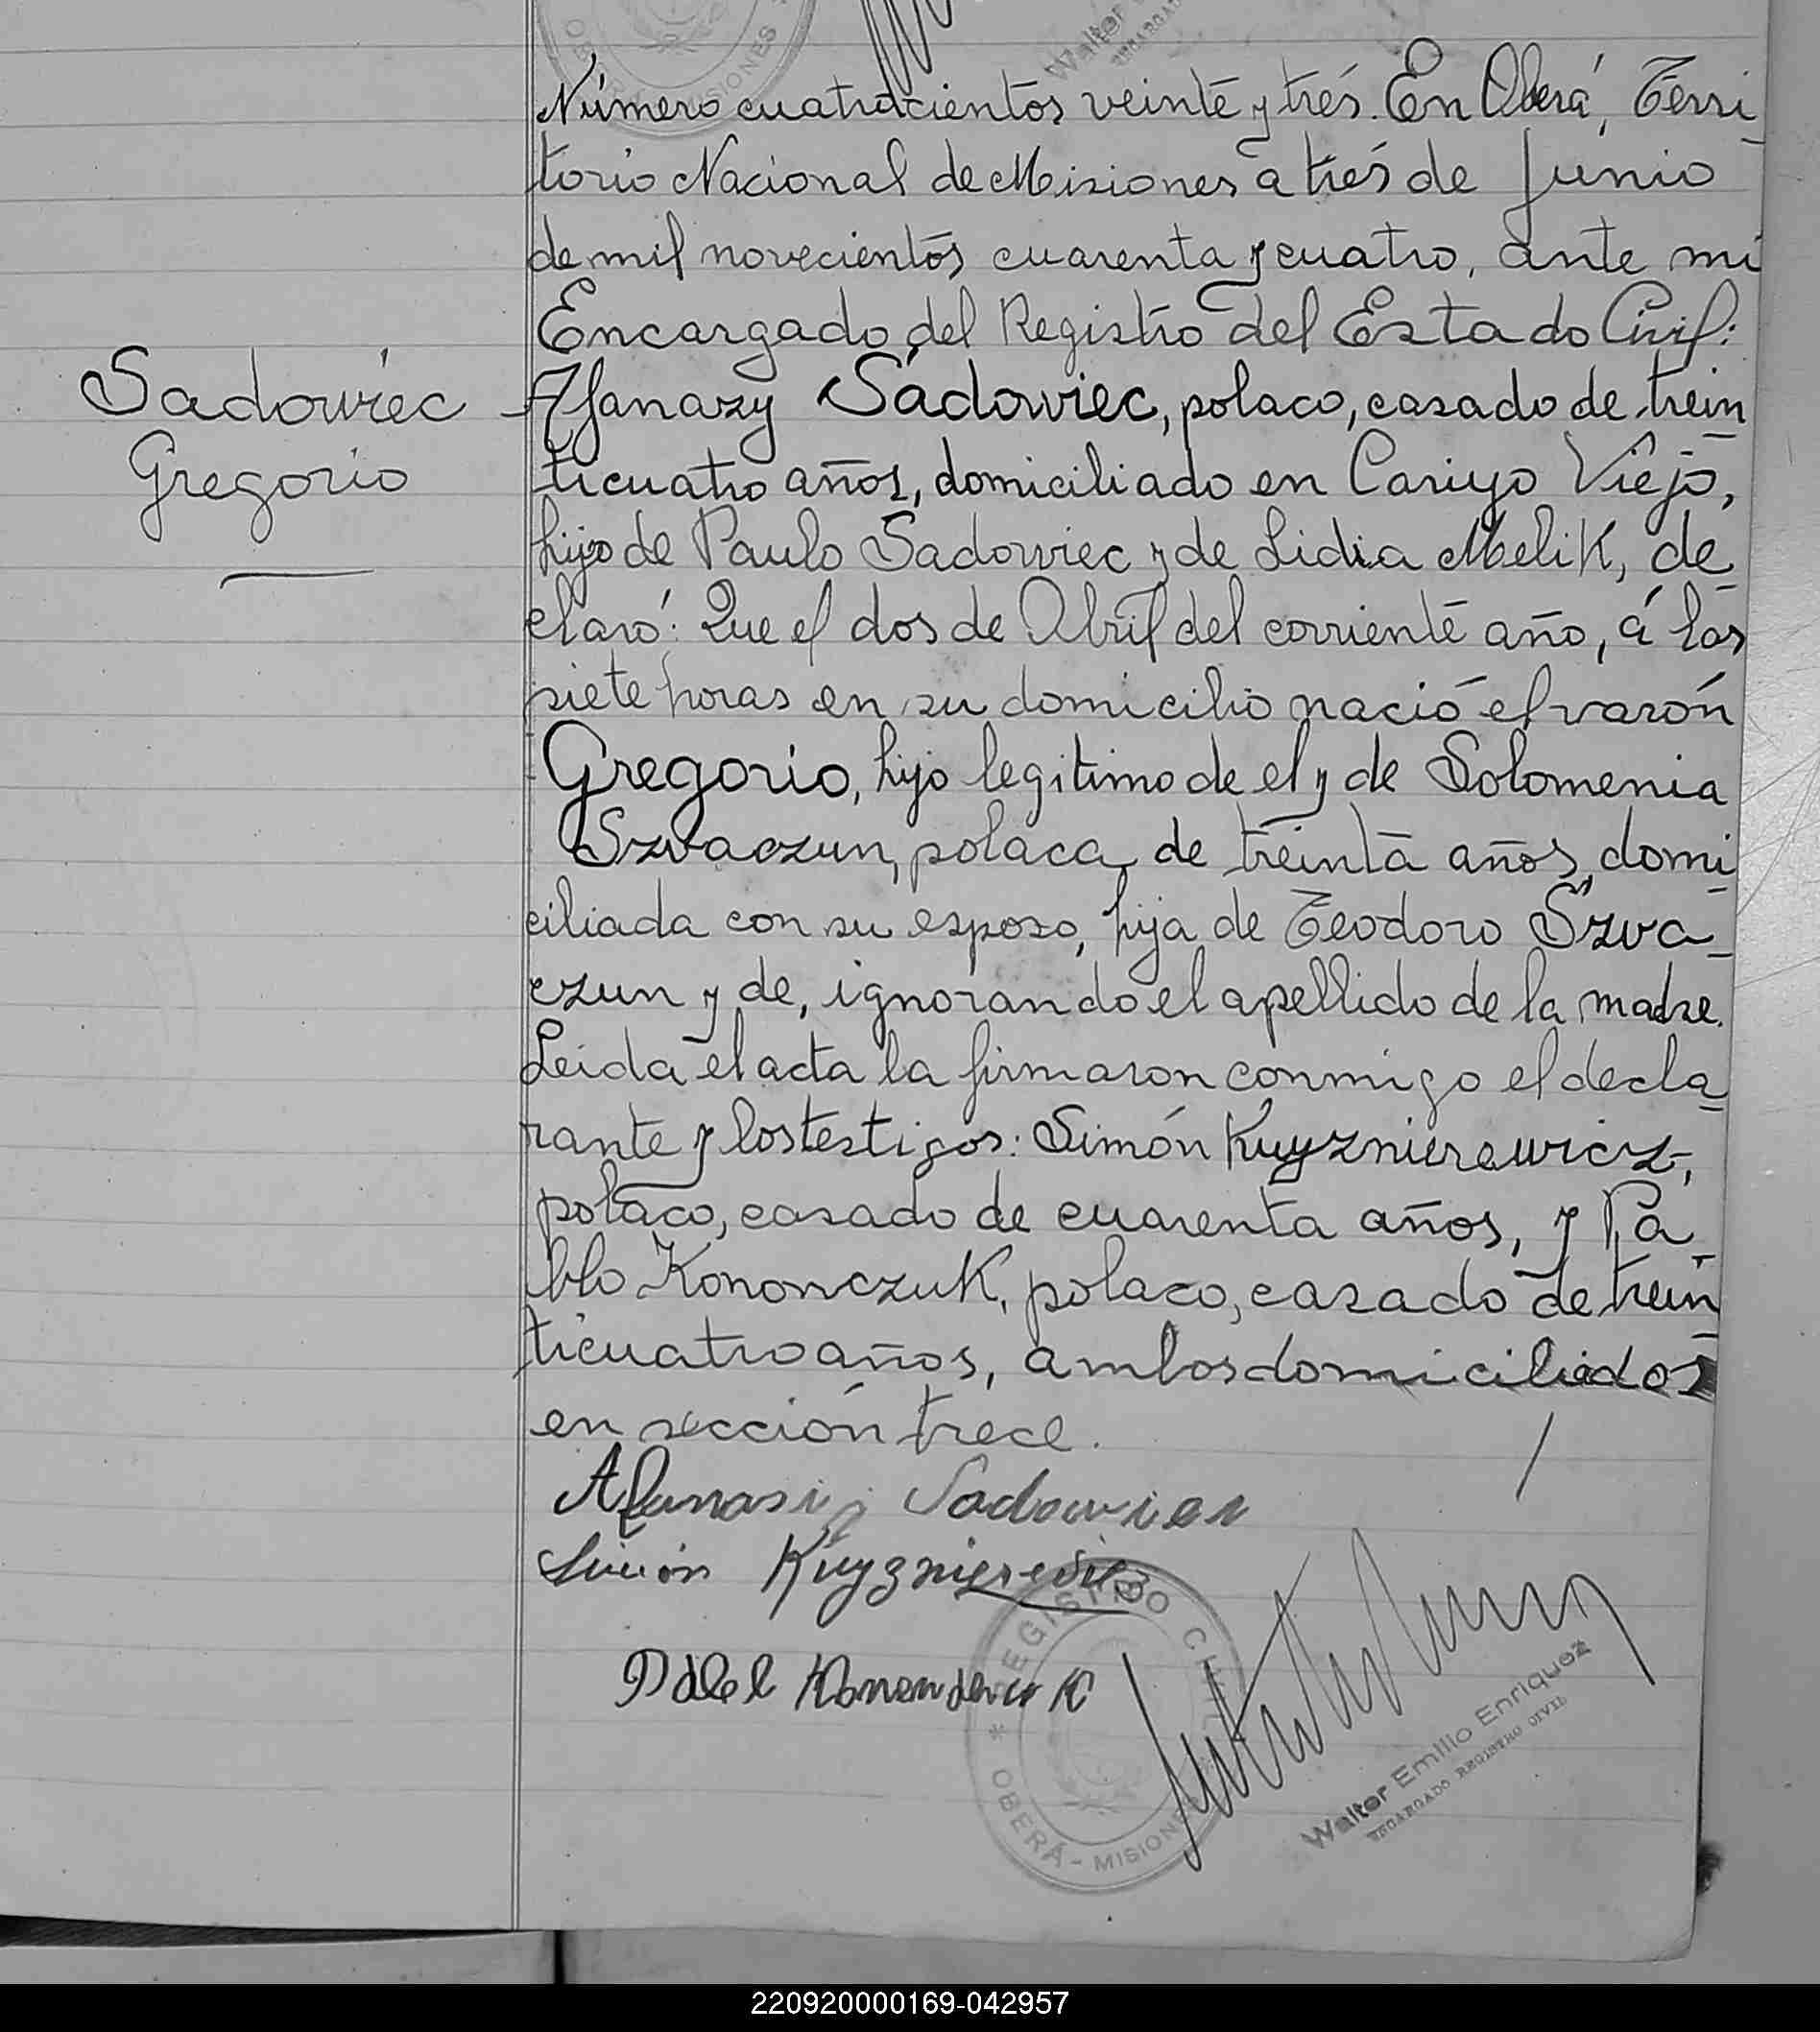 Número cuatrocientos veinte y trés. En Oberá, Terri-
torio Nacional de Misiones a trés de Junio
de mil novecientos cuarenta y cuatro, ante mí
Encargado del Registro del Estado Civil:
Sadowiec
Gregorio
Afanazy Sadowiec, polaco, casado de trein-
ticuatro años, domiciliado en Cariyo Viejo,
hijo de Paulo Sadowiec y de Lidia Melik, de-
claró: Que el dos de Abril del corriente año, á las
siete horas en su domicilio nació el varón
Gregorio, hijo legitimo de el y de Solomenia
Szvaczun, polaca, de treinta años, domi-
ciliada con su esposo, hija de Teodoro Szva-
czun y de, ignorando el apellido de la madre.
Leida el acta la firmaron conmigo el decla-
rante y los testigos: Simón Kuyznierewicz,
polaco, casado de cuarenta años, y Pa-
blo Kononczuk, polaco, casado de trein-
ticuatro años, ambos domiciliados
en sección trece.
Afanasij Sadowiec
Simón Kuyznierewicz
REGISTRO CIVIL
* OBERÁ - MISIONES
Walter Emilio Enriquez
ENCARGADO REGISTRO CIVIL
220920000169-042957